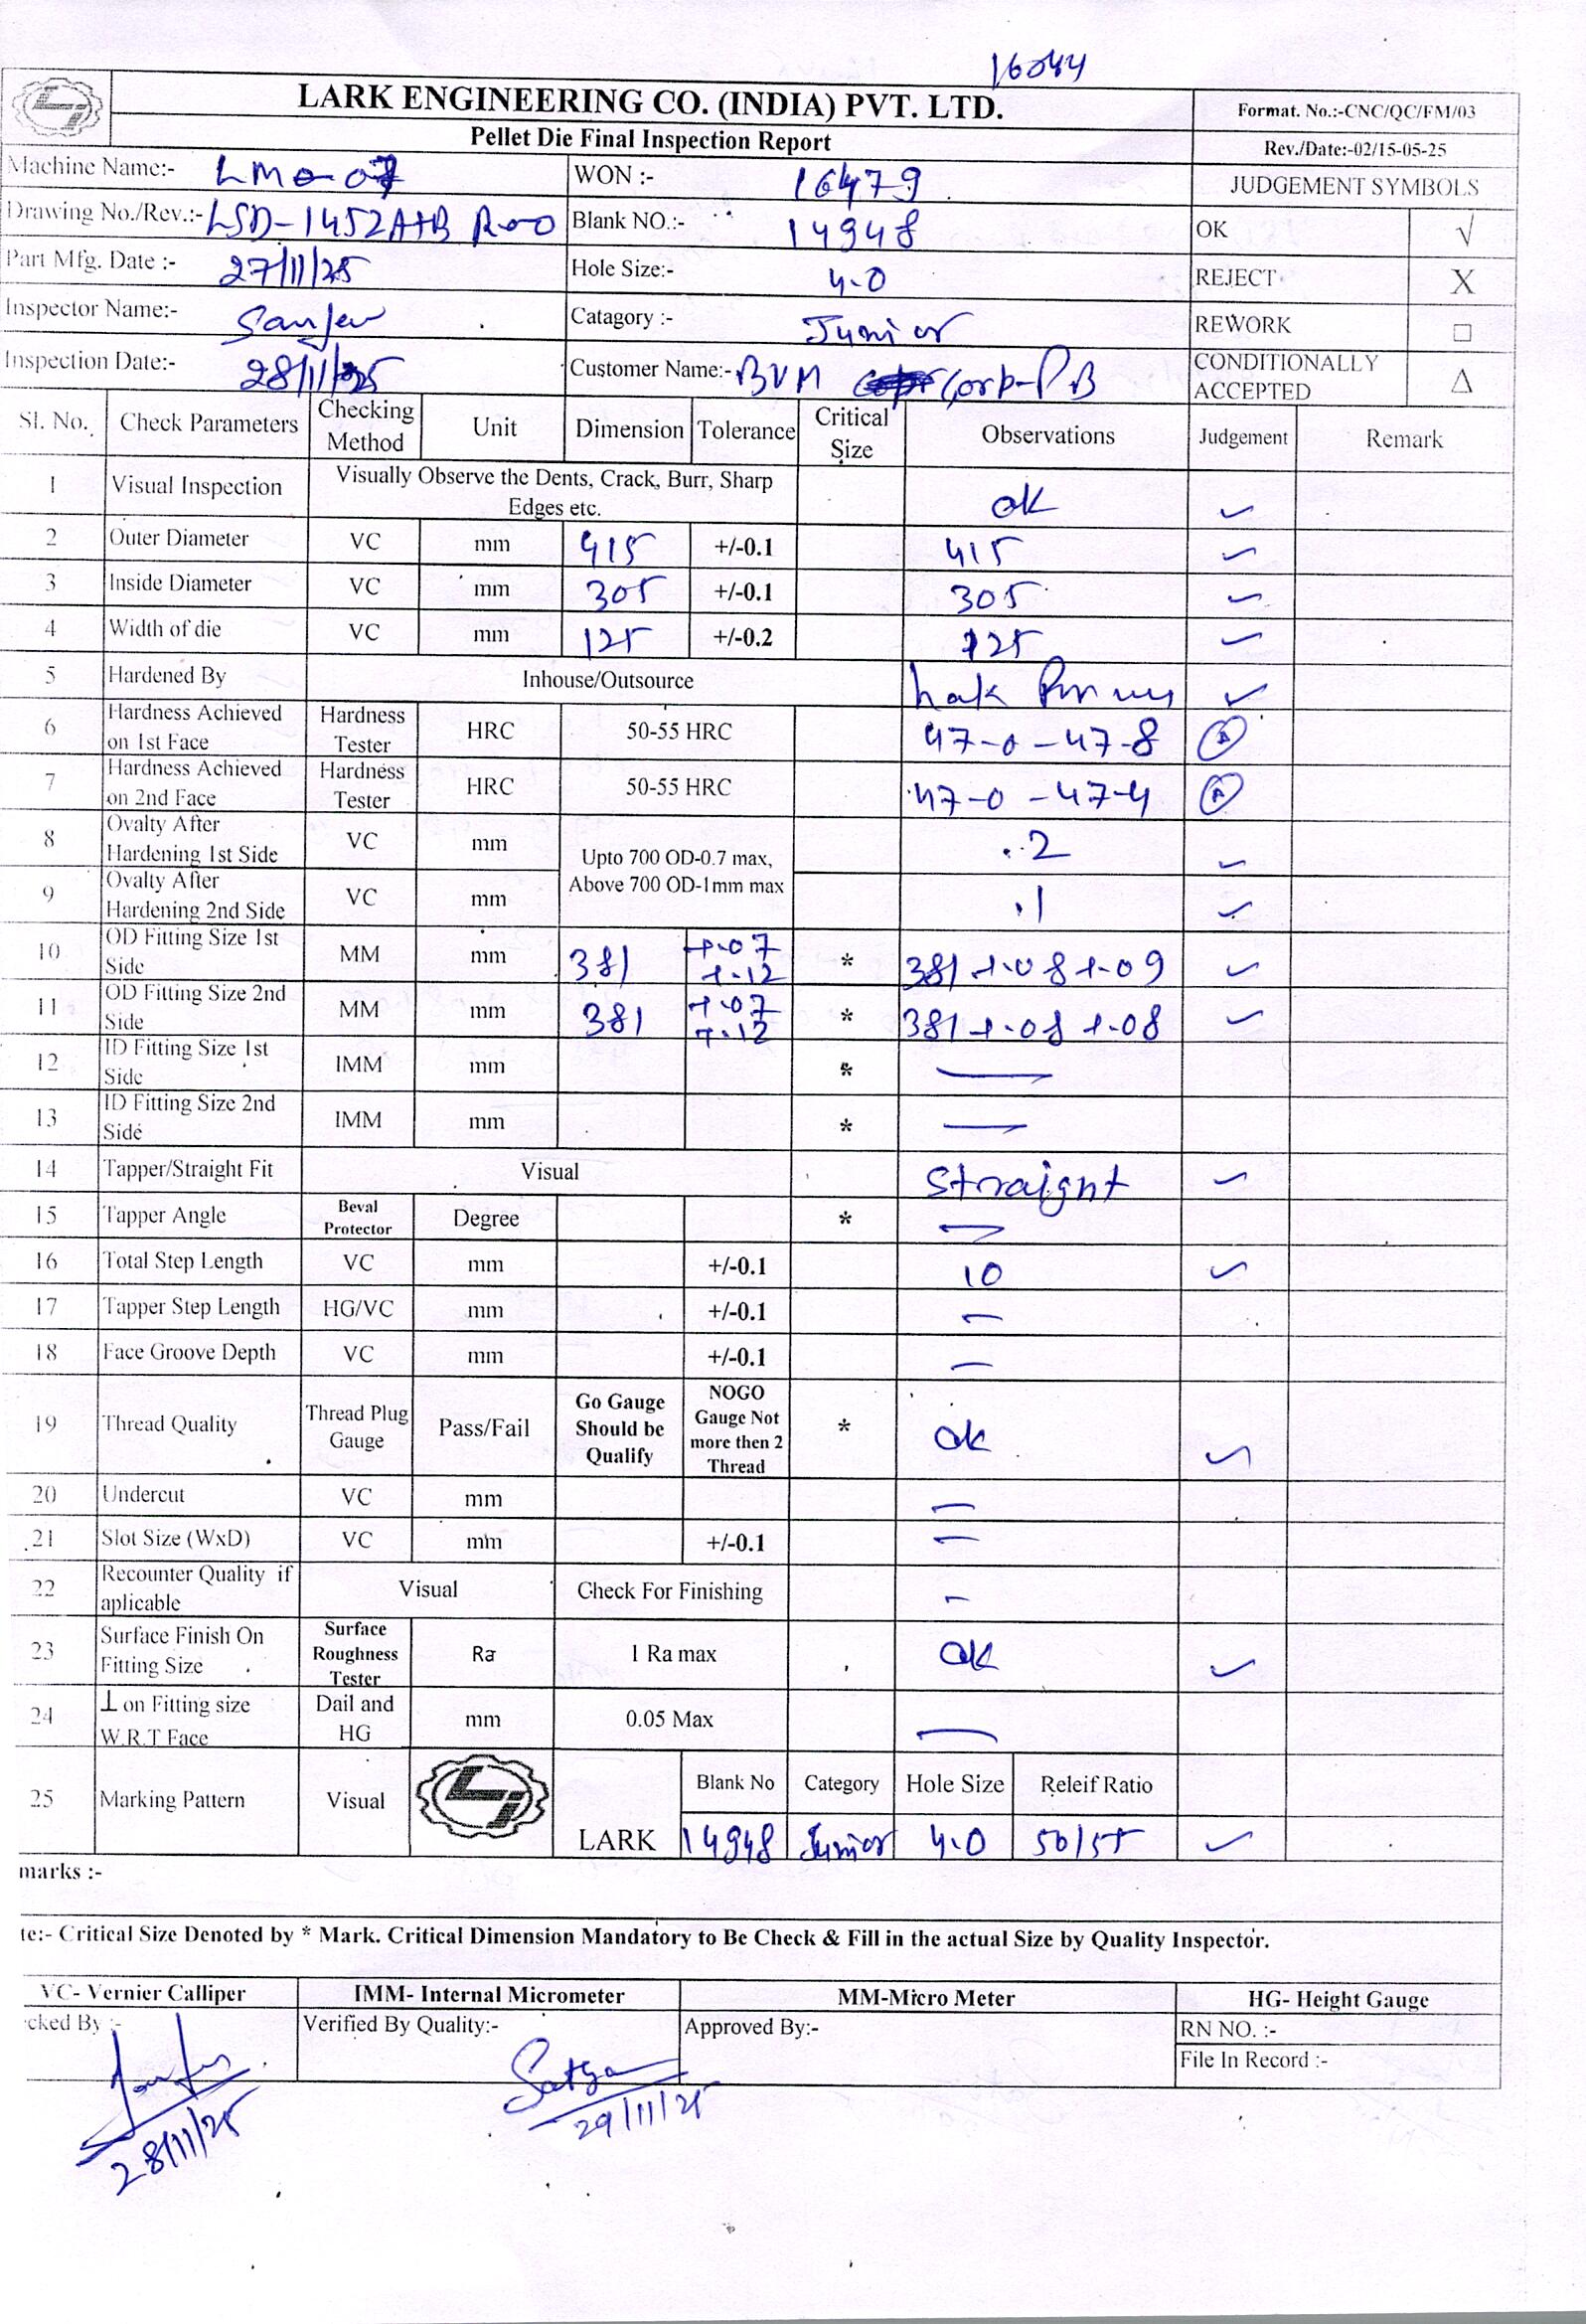 16044
LARK ENGINEERING CO. (INDIA) PVT. LTD.
Format. No.:-CNC/QC/FM/03
Pellet Die Final Inspection Report
Rev./Date:-02/15-05-25
Machine Name:- LMO-07 WON :- 16479 JUDGEMENT SYMBOLS
Drawing No./Rev.:- LSD-1452A+B R00 Blank NO.:- 14948 OK √
Part Mfg. Date :- 27/11/25 Hole Size:- 4.0 REJECT X
Inspector Name:- Sanjev Catagory :- Junior REWORK □
Inspection Date:- 28/11/25 Customer Name:- BVM Corp-PB CONDITIONALLY ACCEPTED Δ
Sl. No. Check Parameters Checking Method Unit Dimension Tolerance Critical Size Observations Judgement Remark
1 Visual Inspection Visually Observe the Dents, Crack, Burr, Sharp Edges etc. ok ✓
2 Outer Diameter VC mm 415 +/-0.1 415 ✓
3 Inside Diameter VC mm 305 +/-0.1 305 ✓
4 Width of die VC mm 125 +/-0.2 125 ✓
5 Hardened By Inhouse/Outsource ✓
6 Hardness Achieved on 1st Face Hardness Tester HRC 50-55 HRC 47-0 - 47-8
7 Hardness Achieved on 2nd Face Hardness Tester HRC 50-55 HRC 47-0 - 47-4
8 Ovalty After Hardening 1st Side VC mm Upto 700 OD-0.7 max, Above 700 OD-1mm max .2 ✓
9 Ovalty After Hardening 2nd Side VC mm .1 ✓
10 OD Fitting Size 1st Side MM mm 381 +.07 +.12 * 381 +.08 +.09 ✓
11 OD Fitting Size 2nd Side MM mm 381 +.07 +.12 * 381 +.08 +.08 ✓
12 ID Fitting Size 1st Side IMM mm * —
13 ID Fitting Size 2nd Side IMM mm * —
14 Tapper/Straight Fit Visual Straight ✓
15 Tapper Angle Beval Protector Degree * —
16 Total Step Length VC mm +/-0.1 10 ✓
17 Tapper Step Length HG/VC mm +/-0.1 —
18 Face Groove Depth VC mm +/-0.1 —
19 Thread Quality Thread Plug Gauge Pass/Fail Go Gauge Should be Qualify NOGO Gauge Not more then 2 Thread * ok ✓
20 Undercut VC mm —
21 Slot Size (WxD) VC mm +/-0.1 —
22 Recounter Quality if aplicable Visual Check For Finishing -
23 Surface Finish On Fitting Size Surface Roughness Tester Ra 1 Ra max ok ✓
24 ⊥ on Fitting size W.R.T Face Dail and HG mm 0.05 Max —
25 Marking Pattern Visual LARK Blank No Category Hole Size Releif Ratio
14948 Junior 4.0 50/55 ✓
marks :-
te:- Critical Size Denoted by * Mark. Critical Dimension Mandatory to Be Check & Fill in the actual Size by Quality Inspector.
VC- Vernier Calliper IMM- Internal Micrometer MM-Micro Meter HG- Height Gauge
cked By :- Verified By Quality:- Approved By:- RN NO. :-
File In Record :-
Satya
28/11/25 29/11/25